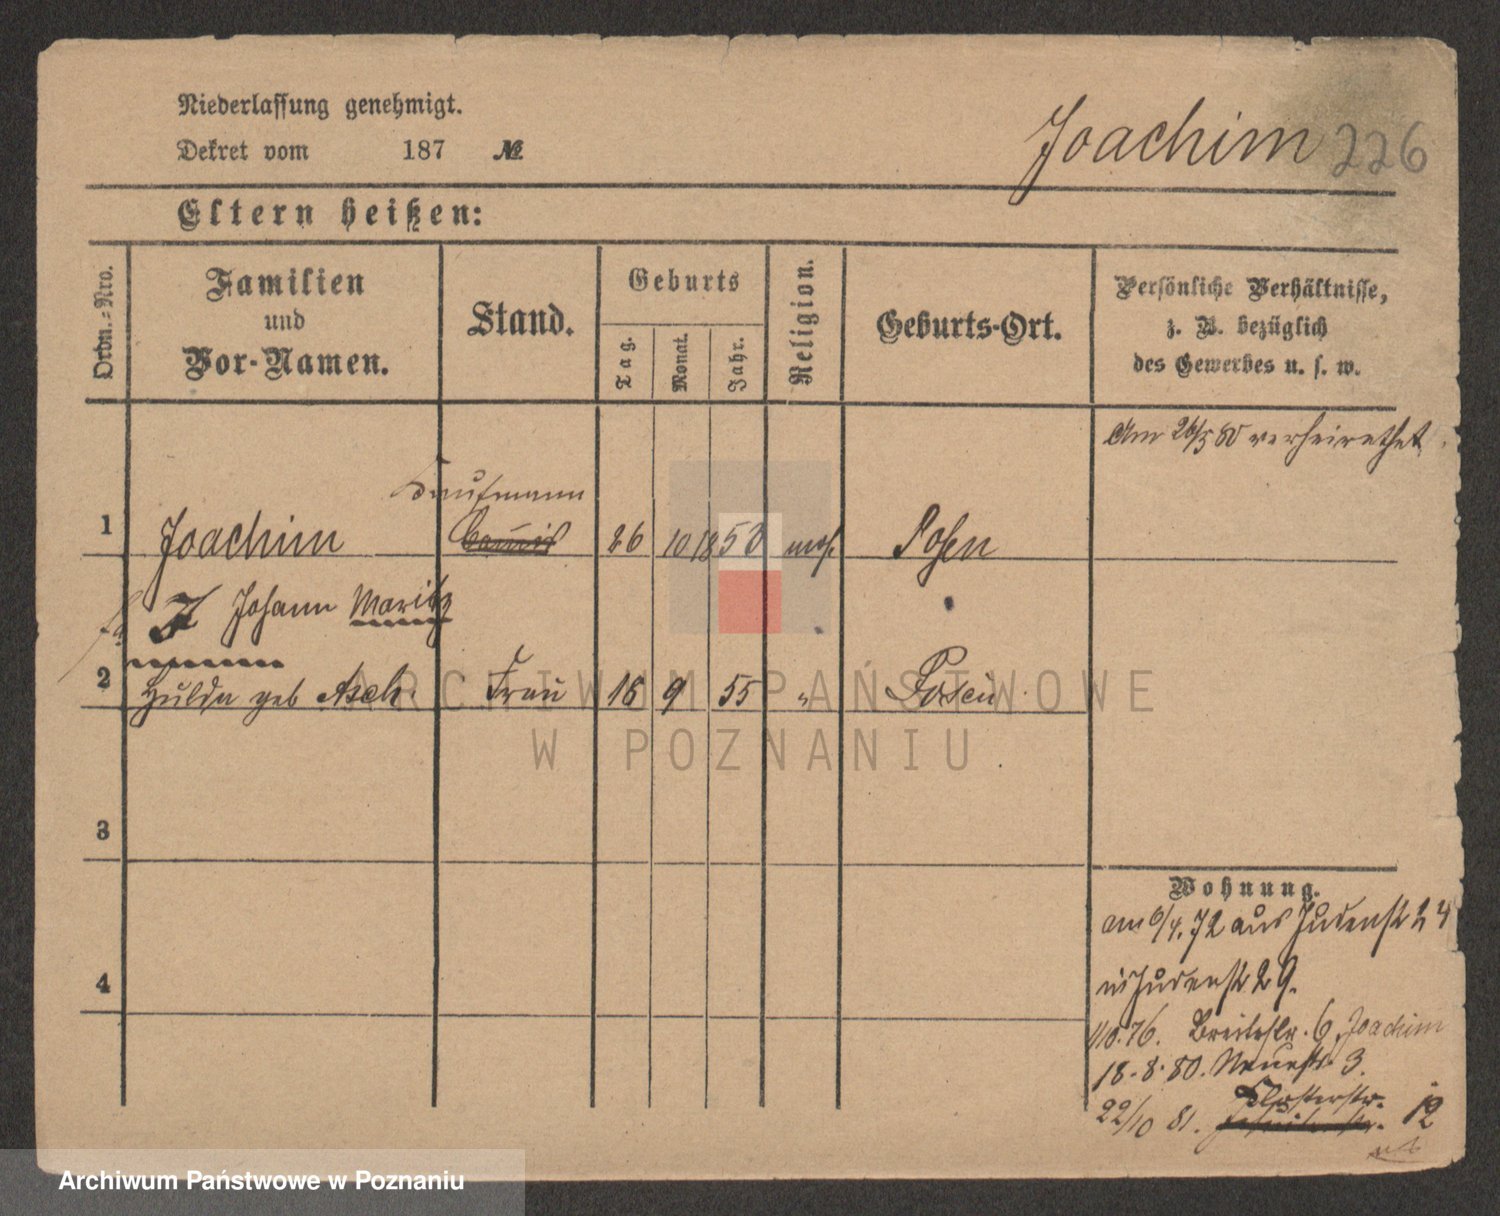 Niederlassung genehmigt.
Joachim 226
Dekret vom 187 №
Eltern heißen:
Ordn.-Nro.
Familien
und
Vor-Namen.
Stand.
Geburts
Tag.
Monat.
Jahr.
Religion.
Geburts-Ort.
Persönliche Verhältnisse,
z. B. bezüglich
des Gewerbes u. s. w.
Am 26/5 80 verheirathet
Kaufmann
1 Joachim 26 10 1853 mos. Posen
Johann Moritz
2 Hulda geb Asch. Frau 16 9 55 " Posen
3
4
Wohnung.
am 6/4. 72 aus Judenstr 24
in Judenstr 29.
1/10. 76. Breitestr. 6 Joachim
18. 8. 80. Neuestr 3.
22/10 81. Klosterstr. 12
ARCHIWUM PAŃSTWOWE
W POZNANIU
Archiwum Państwowe w Poznaniu